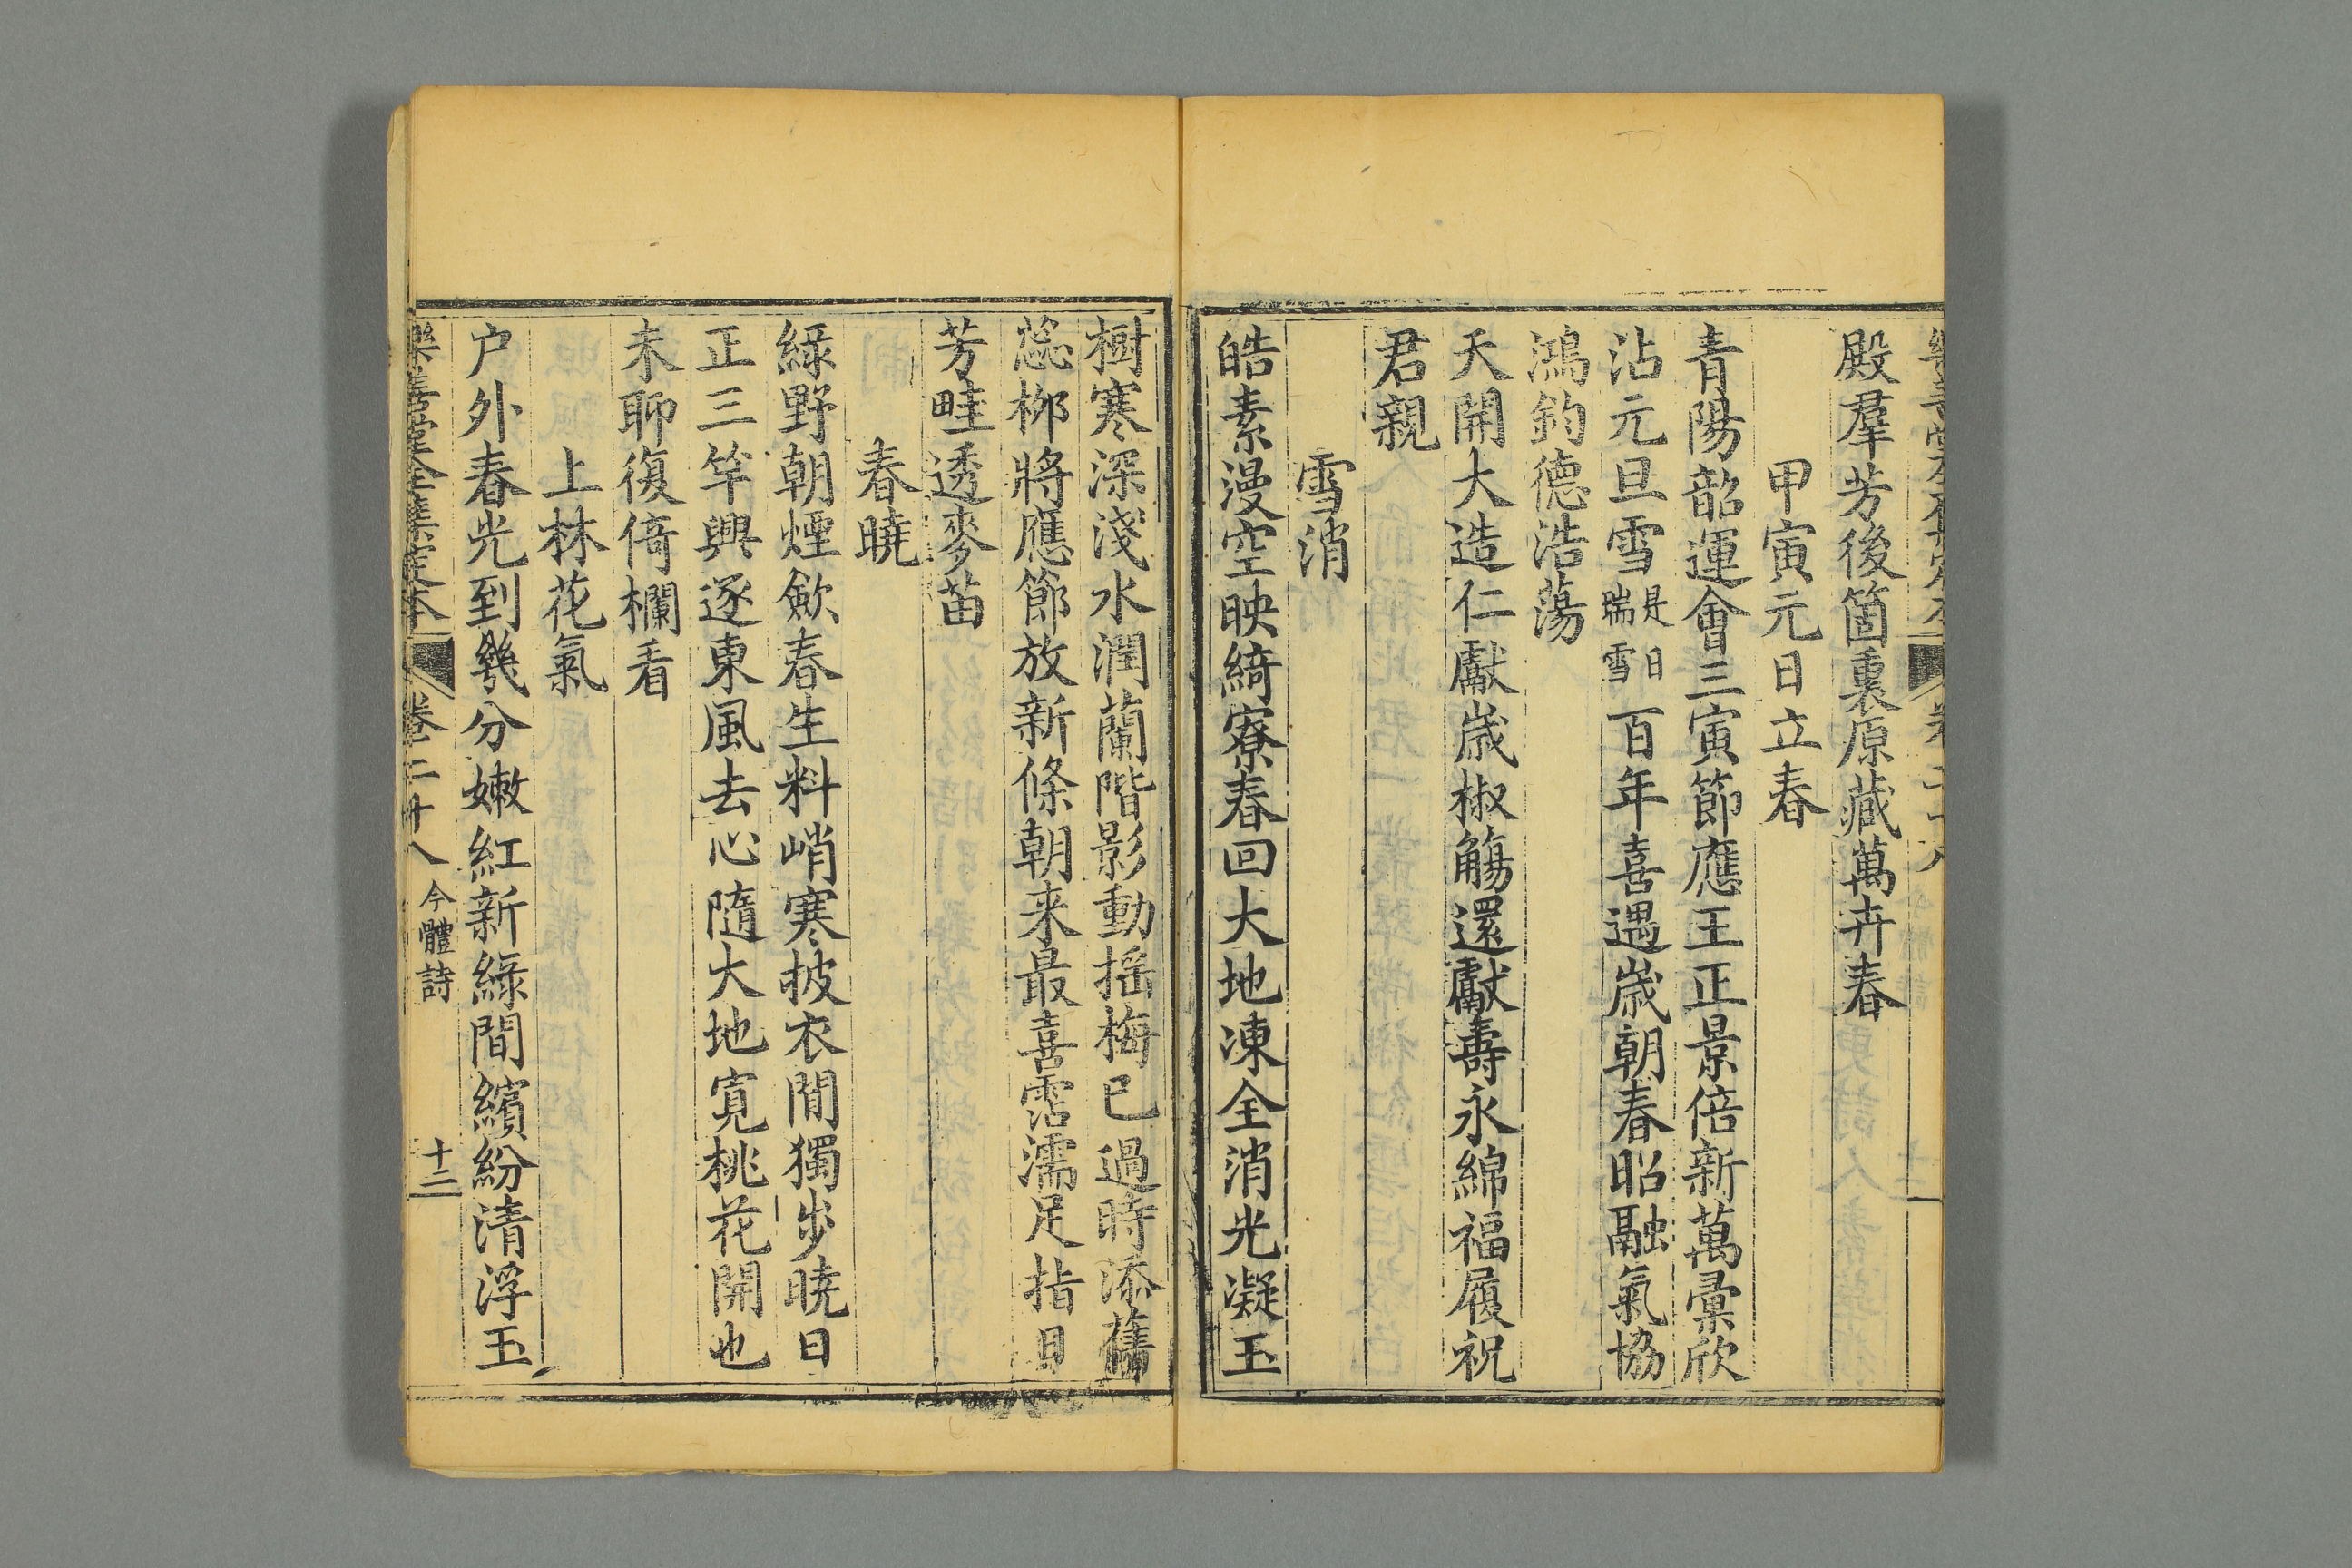 殿羣芳後箇裏原藏萬卉春
甲寅元日立春
青陽韶運會三寅節應王正景倍新萬彙欣
沾元旦雪是日瑞雪百年喜遇歲朝春昭融氣協
鴻鈞德浩蕩
天開大造仁獻歲椒觴還獻壽永綿福履祝
君親
雪消
皓素漫空映綺寮春回大地凍全消光凝玉
樹寒深淺水潤蘭階影動摇梅已過時添舊
蕊栁將應節放新條朝来最喜霑濡足指日
芳畦透麥苗
春曉
綠野朝煙歛春生料峭寒披衣閒獨步曉日
正三竿興逐東風去心隨大地寬桃花開也
未聊復倚欄看
上林花氣
户外春光到幾分嫩紅新綠間繽紛清浮玉
樂善堂全集定本 卷二十八 今體詩 十二